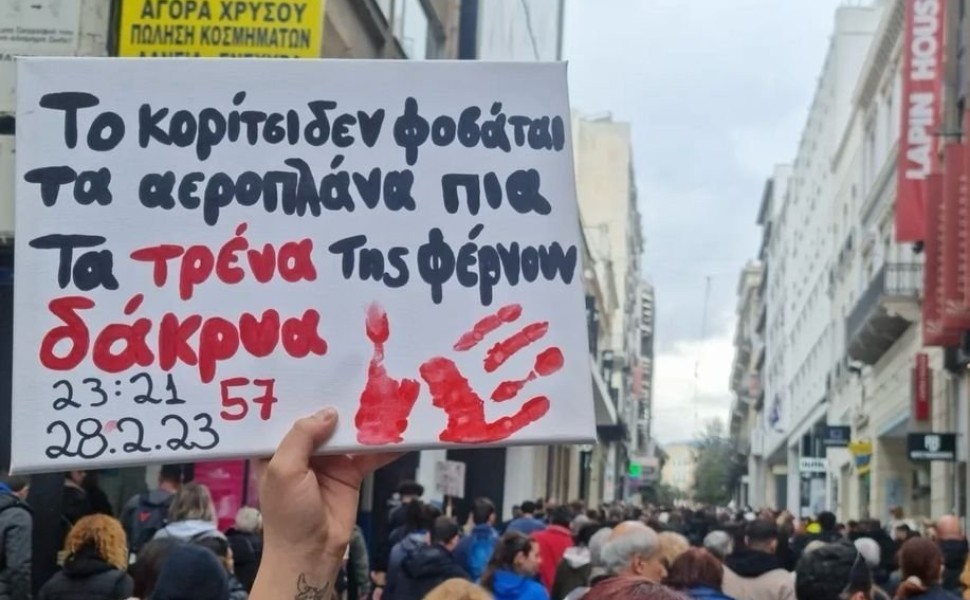 ΑΓΟΡΑ ΧΡΥΣΟΥ
ΠΩΛΗΣΗ ΚΟΣΜΗΜΑΤΩΝ
Το κορίτσι δεν φοβάται
τα αεροπλάνα πια
Τα τρένα της φέρνουν
δάκρυα
23:21 57
28.2.23
LAPIN HOUSE